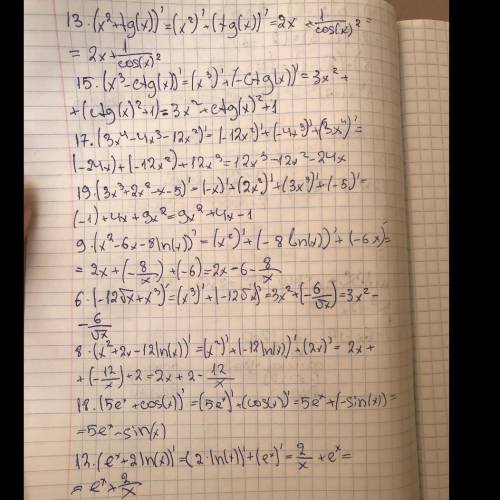 13. (x²+tg(x))' = (x²)' + (tg(x))' = 2x + 1/cos(x)² =
= 2x + 1/cos(x)²
15. (x³-ctg(x))' = (x³)' + (-ctg(x))' = 3x² +
+ (ctg(x)²+1) = 3x² + ctg(x)² + 1
17. (3x⁴-4x³-12x²)' = (-12x²)' + (-4x³)' + (3x⁴)' =
(-24x) + (-12x²) + 12x³ = 12x³ - 12x² - 24x
19. (3x³+2x²-x-5)' = (-x)' + (2x²)' + (3x³)' + (-5)' =
(-1) + 4x + 9x² = 9x² + 4x - 1
9. (x²-6x-8ln(x))' = (x²)' + (-8ln(x))' + (-6x)' =
= 2x + (-8/x) + (-6) = 2x - 6 - 8/x
6. (-12√x+x³)' = (x³)' + (-12√x)' = 3x² + (-6/√x) = 3x² -
- 6/√x
8. (x²+2x-12ln(x))' = (x²)' + (-12ln(x))' + (2x)' = 2x +
+ (-12/x) + 2 = 2x + 2 - 12/x
18. (5eˣ+cos(x))' = (5eˣ)' + (cos(x))' = 5eˣ + (-sin(x)) =
= 5eˣ - sin(x)
12. (eˣ+2ln(x))' = (2·ln(x))' + (eˣ)' = 2/x + eˣ =
= eˣ + 2/x